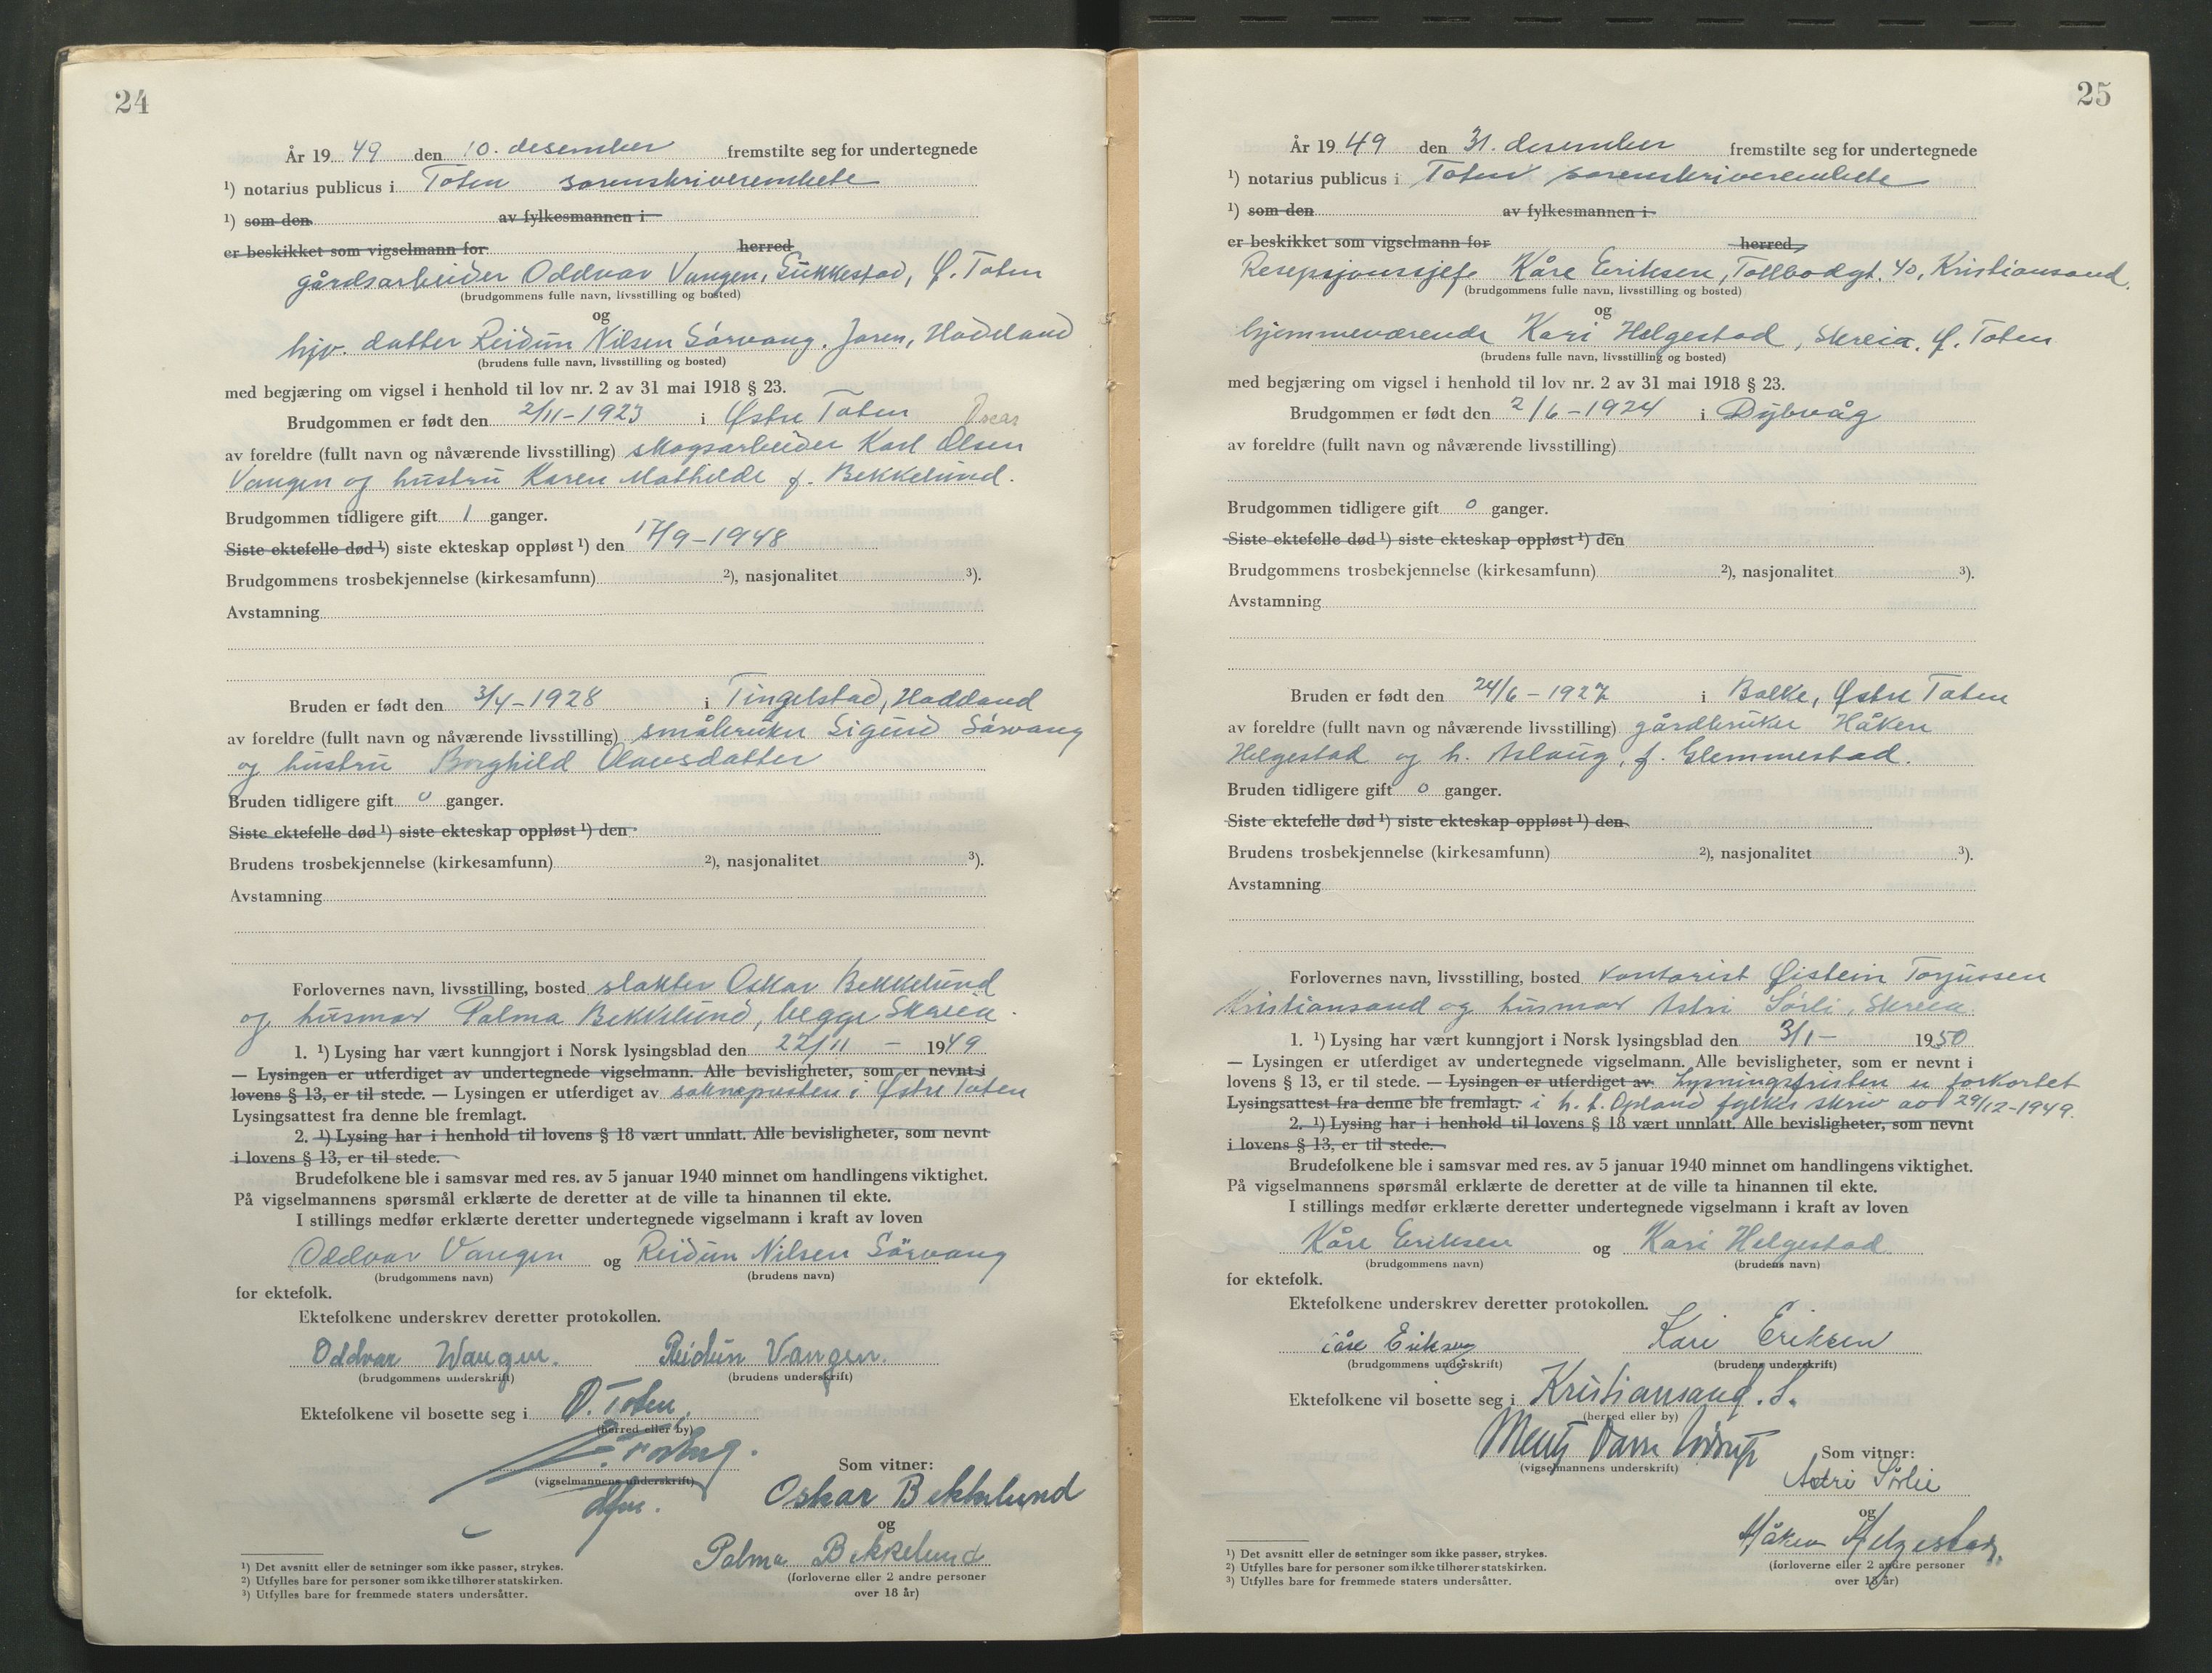 24
År 19 49 den 10. desember fremstilte seg for undertegnede
¹) notarius publicus i Toten sorenskriverembete
¹) som den av fylkesmannen i
er beskikket som vigselmann for herred
gårdsarbeider Oddvar Vangen, Sukkestad, Ø. Toten
(brudgommens fulle navn, livsstilling og bosted)
og
hjv. datter Reidun Nilsen Sørvang, Jaren, Hadeland
(brudens fulle navn, livsstilling og bosted)
med begjæring om vigsel i henhold til lov nr. 2 av 31 mai 1918 § 23.
Brudgommen er født den 2/11-1923 i Østre Toten Oscar
av foreldre (fullt navn og nåværende livsstilling) skogsarbeider Karl Olsen
Vangen og hustru Karen Mathilde f. Bekkelund.
Brudgommen tidligere gift 1 ganger.
Siste ektefelle død ¹) siste ekteskap oppløst ¹) den 17/9-1948
Brudgommens trosbekjennelse (kirkesamfunn) ²), nasjonalitet ³).
Avstamning
Bruden er født den 3/4-1928 i Tingelstad, Hadeland
av foreldre (fullt navn og nåværende livsstilling) småbruker Sigurd Sørvang
og hustru Borghild Olavsdatter
Bruden tidligere gift 0 ganger.
Siste ektefelle død ¹) siste ekteskap oppløst ¹) den
Brudens trosbekjennelse (kirkesamfunn) ²), nasjonalitet ³).
Avstamning
Forlovernes navn, livsstilling, bosted slakter Oskar Bekkelund
og husmor Palma Bekkelund, begge Skreia.
1. ¹) Lysing har vært kunngjort i Norsk lysingsblad den 22/11 - 1949
— Lysingen er utferdiget av undertegnede vigselmann. Alle bevisligheter, som er nevnt i
lovens § 13, er til stede. — Lysingen er utferdiget av soknepresten i Østre Toten
Lysingsattest fra denne ble fremlagt.
2. ¹) Lysing har i henhold til lovens § 18 vært unnlatt. Alle bevisligheter, som nevnt
i lovens § 13, er til stede. —
Brudefolkene ble i samsvar med res. av 5 januar 1940 minnet om handlingens viktighet.
På vigselmannens spørsmål erklærte de deretter at de ville ta hinannen til ekte.
I stillings medfør erklærte deretter undertegnede vigselmann i kraft av loven
Oddvar Vangen og Reidun Nilsen Sørvang
(brudgommens navn) (brudens navn)
for ektefolk.
Ektefolkene underskrev deretter protokollen.
Oddvar Wangen. Reidun Vangen.
(brudgommens underskrift) (brudens underskrift)
Ektefolkene vil bosette seg i Ø. Toten
(herred eller by)
(vigselmannens underskrift)
Som vitner:
Oskar Bekkelund
og
Palma Bekkelund
(forloverne eller 2 andre personer
over 18 år)
¹) Det avsnitt eller de setninger som ikke passer, strykes.
²) Utfylles bare for personer som ikke tilhører statskirken.
³) Utfylles bare for fremmede staters undersåtter.
25
År 19 49 den 31. desember fremstilte seg for undertegnede
¹) notarius publicus i Toten sorenskriverembete
¹) som den av fylkesmannen i
er beskikket som vigselmann for herred
Resepsjonssjef Kåre Eriksen, Tollbodgt. 40, Kristiansand.
(brudgommens fulle navn, livsstilling og bosted)
og
hjemmeværende Kari Helgestad, Skreia, Ø. Toten
(brudens fulle navn, livsstilling og bosted)
med begjæring om vigsel i henhold til lov nr. 2 av 31 mai 1918 § 23.
Brudgommen er født den 2/6-1924 i Dybvåg
av foreldre (fullt navn og nåværende livsstilling)
Brudgommen tidligere gift 0 ganger.
Siste ektefelle død ¹) siste ekteskap oppløst ¹) den
Brudgommens trosbekjennelse (kirkesamfunn) ²), nasjonalitet ³).
Avstamning
Bruden er født den 24/6-1927 i Balke, Østre Toten
av foreldre (fullt navn og nåværende livsstilling) gårdbruker Håken
Helgestad og h. Aslaug, f. Glemmestad.
Bruden tidligere gift 0 ganger.
Siste ektefelle død ¹) siste ekteskap oppløst ¹) den
Brudens trosbekjennelse (kirkesamfunn) ²), nasjonalitet ³).
Avstamning
Forlovernes navn, livsstilling, bosted kontorist Øistein Torjussen
Kristiansand og husmor Astri Sørli, Skreia
1. ¹) Lysing har vært kunngjort i Norsk lysingsblad den 3/1- 1950
— Lysingen er utferdiget av undertegnede vigselmann. Alle bevisligheter, som er nevnt i
lovens § 13, er til stede. — Lysingen er utferdiget av Lysningsfristen er forkortet
Lysingsattest fra denne ble fremlagt. i h. t. Opland fylkes skriv av 29/12-1949.
2. ¹) Lysing har i henhold til lovens § 18 vært unnlatt. Alle bevisligheter, som nevnt
i lovens § 13, er til stede. —
Brudefolkene ble i samsvar med res. av 5 januar 1940 minnet om handlingens viktighet.
På vigselmannens spørsmål erklærte de deretter at de ville ta hinannen til ekte.
I stillings medfør erklærte deretter undertegnede vigselmann i kraft av loven
Kåre Eriksen og Kari Helgestad
(brudgommens navn) (brudens navn)
for ektefolk.
Ektefolkene underskrev deretter protokollen.
Kåre Eriksen Kari Eriksen
(brudgommens underskrift) (brudens underskrift)
Ektefolkene vil bosette seg i Kristiansand. S.
(herred eller by)
(vigselmannens underskrift)
Som vitner:
Astri Sørlie
og
Håken Helgestad
(forloverne eller 2 andre personer
over 18 år)
¹) Det avsnitt eller de setninger som ikke passer, strykes.
²) Utfylles bare for personer som ikke tilhører statskirken.
³) Utfylles bare for fremmede staters undersåtter.